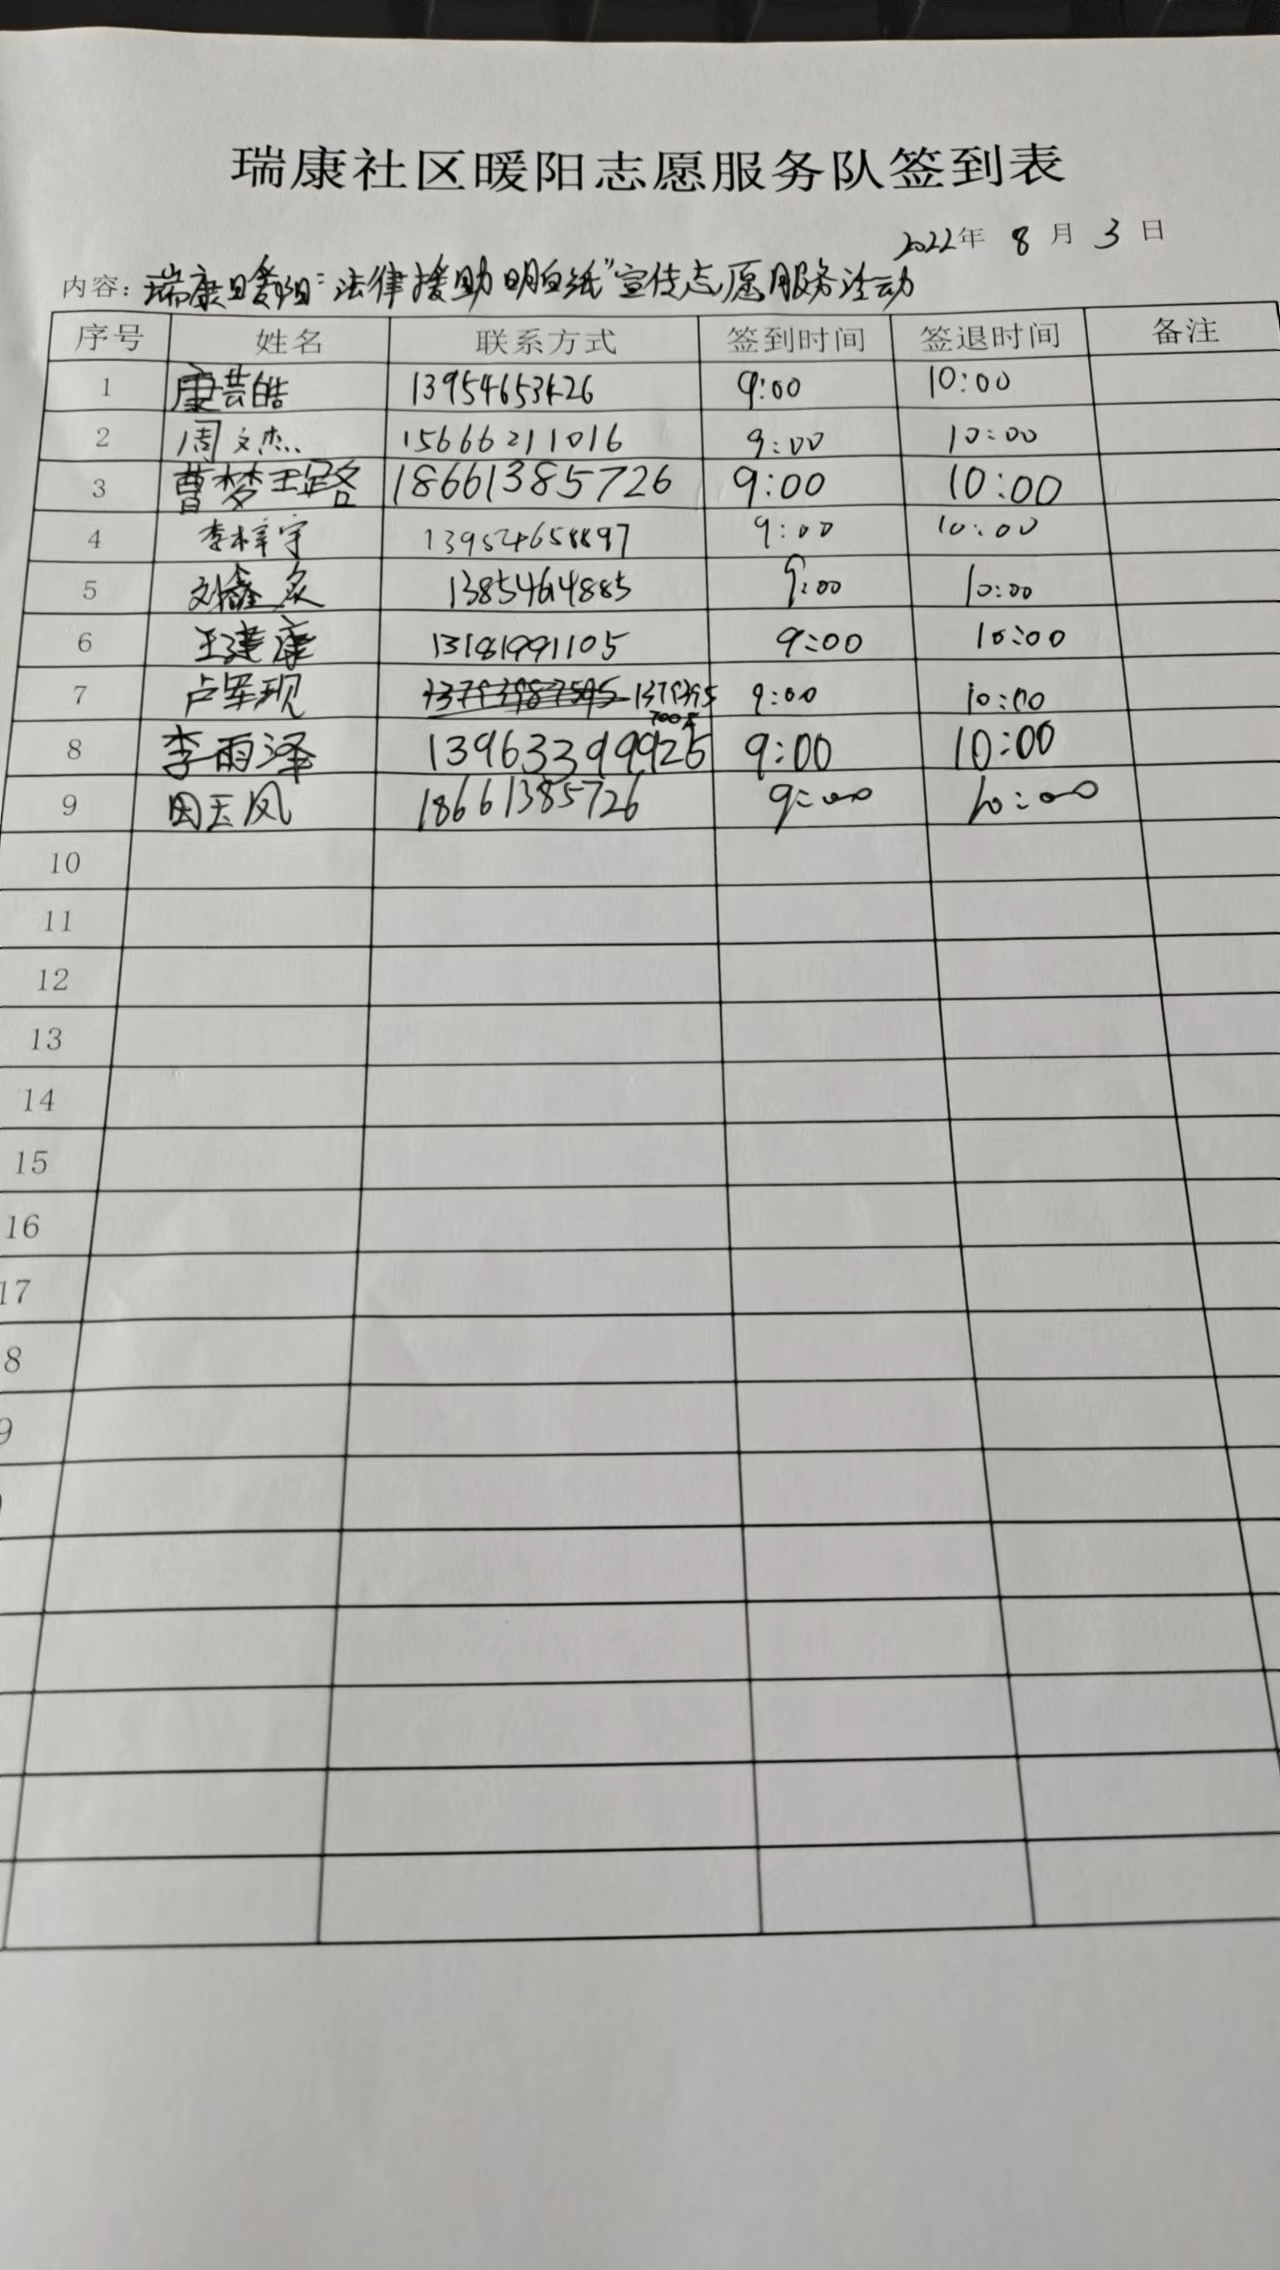 瑞康社区暖阳志愿服务队签到表
2022年 8 月 3 日
内容：瑞康暖阳"法律援助明白纸"宣传志愿服务活动
序号 姓名 联系方式 签到时间 签退时间 备注
1 康芸皓 9:00 10:00
2 周文杰 15666211016 9:00 10:00
3 曹梦璐 18661385726 9:00 10:00
4 李梓宇 9:00 10:00
5 刘鑫 9:00 10:00
6 王建康 13181991105 9:00 10:00
7 卢军现 9:00 10:00
8 李雨泽 13963399925 9:00 10:00
9 田玉凤 18661385726 9:00 10:00
10
11
12
13
14
15
16
17
8
9